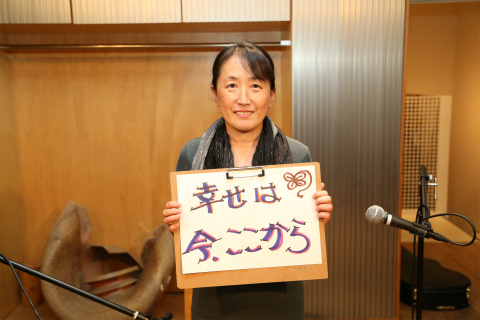 幸せは
今、ここから